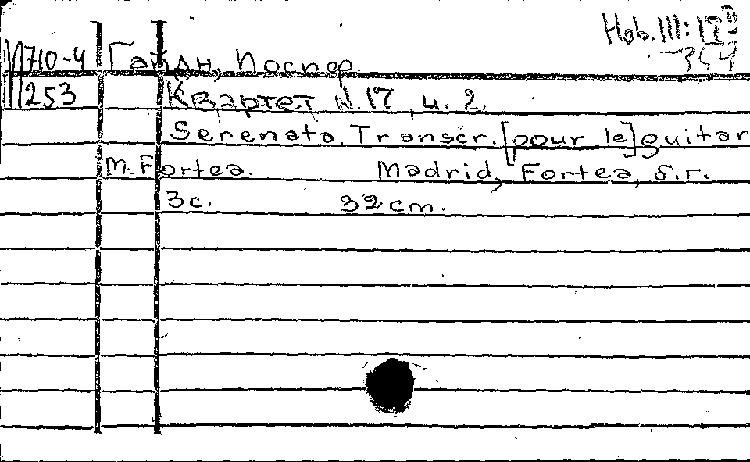 Hob. III: 17 II
354
М 710-4 Гайдн, Йосиф
253 Квартет N. 17, ч. 2.
Serenata. Transcr. [pour le] guitar
M. Fortea. Madrid, Fortea, s.r.
3c. 32 cm.